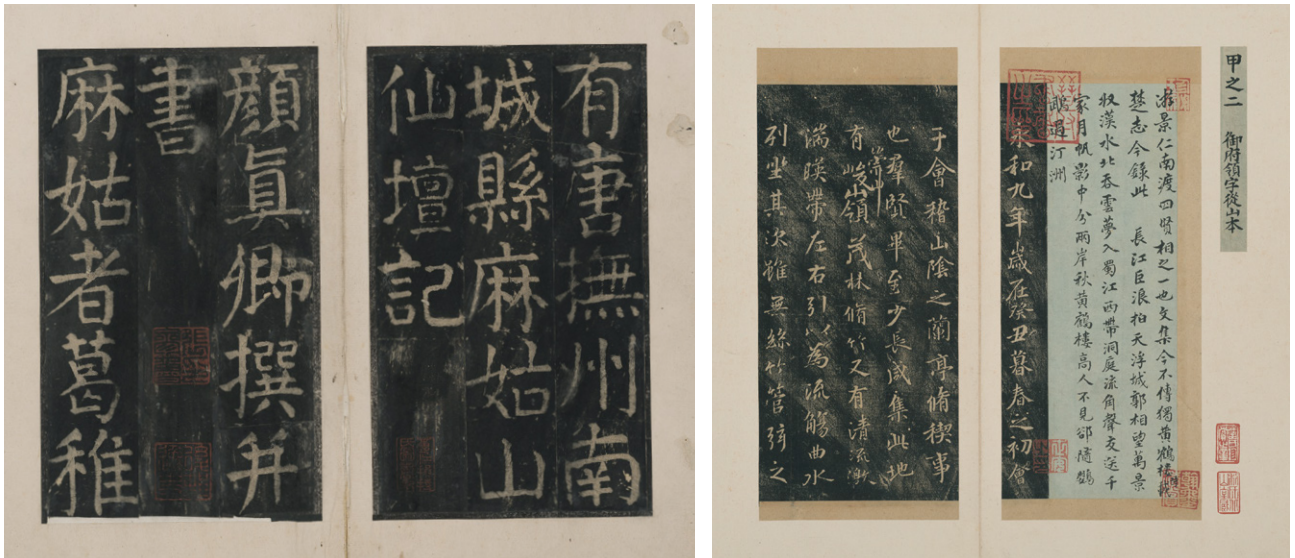 有唐撫州南
城縣麻姑山
仙壇記
顏眞卿撰并
書
麻姑者葛稚
甲之二 御府領字從山本
游景仁南渡四賢相之一也文集今不傳獨黃鶴樓
楚志今錄此 長江巨浪拍天浮城郭相望萬景
收漢水北吞雲夢入蜀江西帶洞庭流角聲交送千
家月帆影中分兩岸秋黃鶴樓高人不見卻隨鸚
鵡過汀洲
永和九年歲在癸丑暮春之初會
于會稽山陰之蘭亭脩稧事
也羣賢畢至少長咸集此地
有崇山峻嶺茂林脩竹又有清流激
湍暎帶左右引以為流觴曲水
列坐其次雖無絲竹管弦之